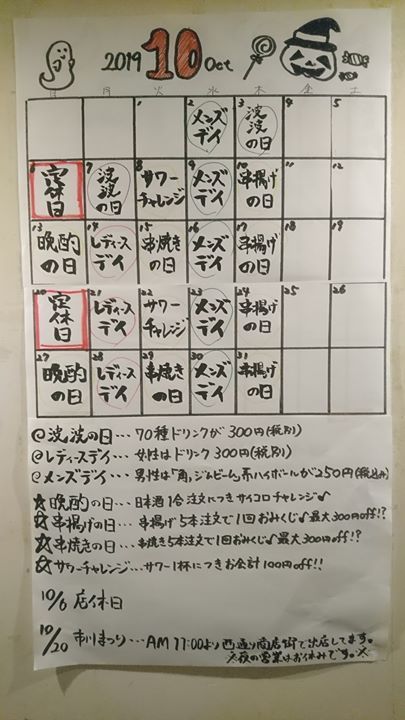 2019 10 Oct
日 月 火 水 木 金 土
1 2 メンズデイ 3 波波の日 4 5
6 定休日 7 波波の日 8 サワーチャレンジ 9 メンズデイ 10 串揚げの日 11 12
13 晩酌の日 14 レディースデイ 15 串焼きの日 16 メンズデイ 17 串揚げの日 18 19
20 定休日 21 レディースデイ 22 サワーチャレンジ 23 メンズデイ 24 串揚げの日 25 26
27 晩酌の日 28 レディースデイ 29 串焼きの日 30 メンズデイ 31 串揚げの日
@波波の日…70種ドリンクが300円(税別)
@レディースデイ…女性はドリンク300円(税別)
@メンズデイ…男性は「角,ジムビーム」系ハイボールが250円(税込み)
☆晩酌の日…日本酒1合注文につきサイコロチャレンジ♪
☆串揚げの日…串揚げ5本注文で1回おみくじ♪最大300円off!?
☆串焼きの日…串焼き5本注文で1回おみくじ♪最大300円off!?
☆サワーチャレンジ…サワー1杯につきお会計100円off!!
10/6 店休日
10/20 市川まつり…AM11:00より西通り商店街で出店してます。
※夜の営業はお休みです。※